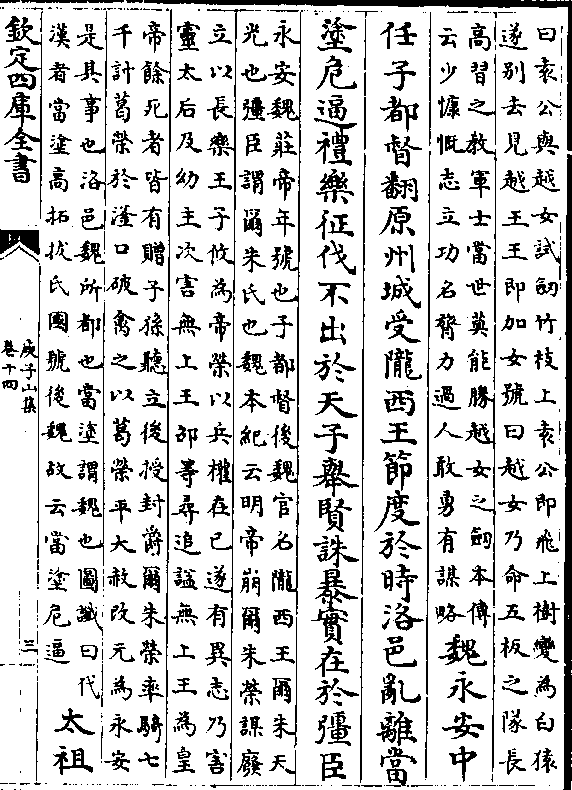 曰袁公與越女試劒竹枝上袁公即飛上樹變為白猿
遂别去見越王王即加女號曰越女乃命五板之隊長
高習之教軍士當世莫能勝越女之劒本傳
云少慷慨志立功名膂力過人敢勇有謀略
魏永安中
任子都督翻原州城受隴西王節度於時洛邑亂離當
塗危逼禮樂征伐不出於天子舉賢誅暴實在於彊臣
永安魏莊帝年號也子都督後魏官名隴西王爾朱天
光也彊臣謂爾朱氏也魏本紀云明帝崩爾朱榮謀廢
立以長樂王子攸為帝榮以兵權在已遂有異志乃害
靈太后及幼主次害無上王邵等尋追諡無上王為皇
帝餘死者皆有贈子孫聽立後授封爵爾朱榮率騎七
千計葛榮於滏口破禽之以葛榮平大赦改元為永安
是其事也洛邑魏所都也當塗謂魏也圖讖曰代
漢者當塗高拓拔氏國號後魏故云當塗危逼
太祖
欽定四庫全書
庾子山集
卷十四
三